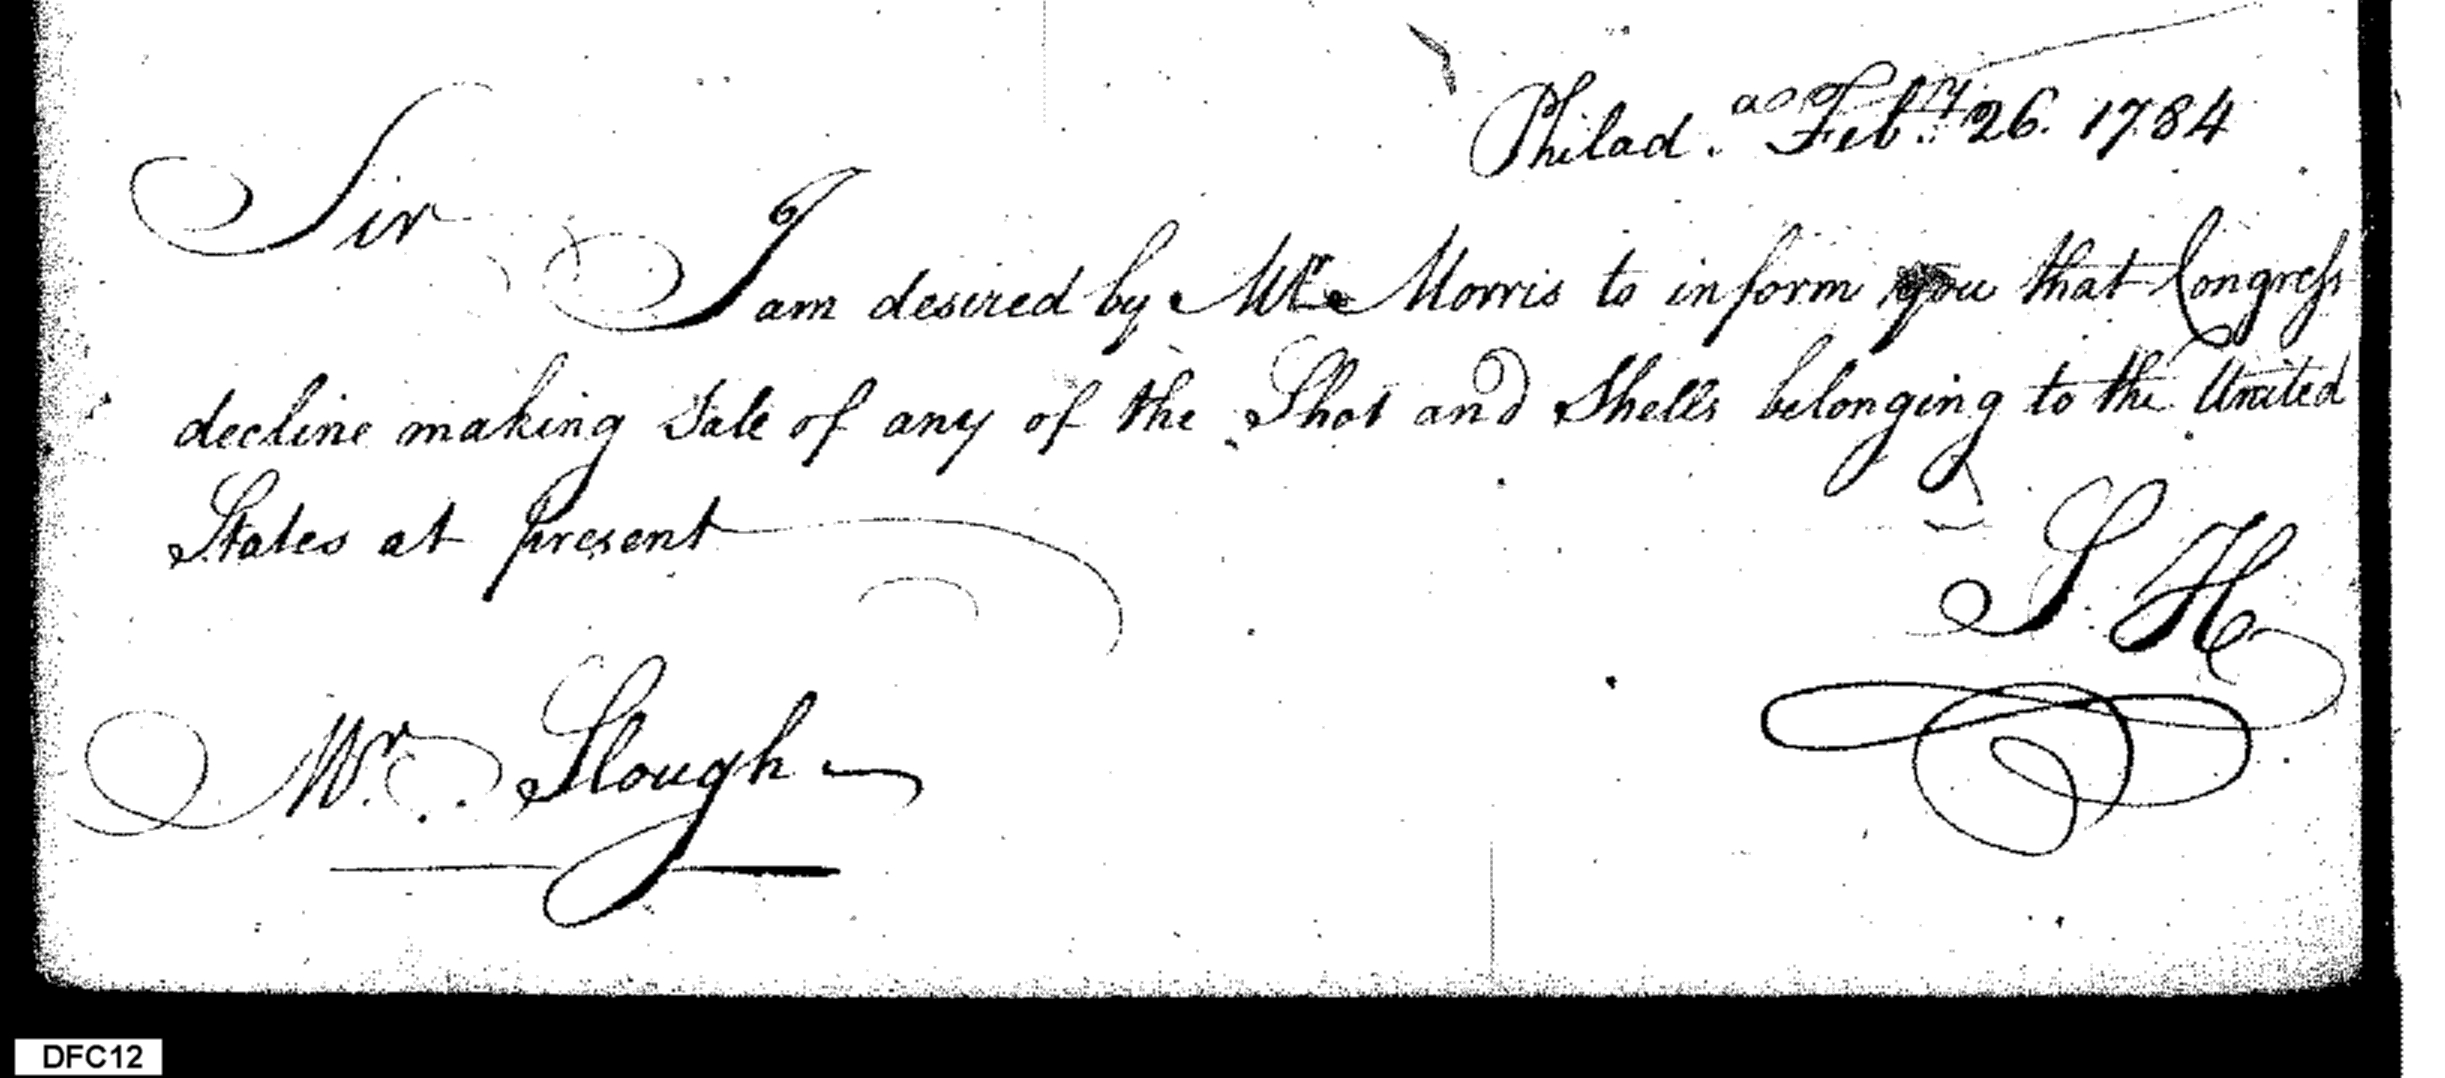 Philad.a Feb.ry 26. 1784
Sir
I am desired by Mr. Morris to inform you that Congress
decline making Sale of any of the Shot and Shells belonging to the United
States at present
S. H
Mr. Slough
DFC12